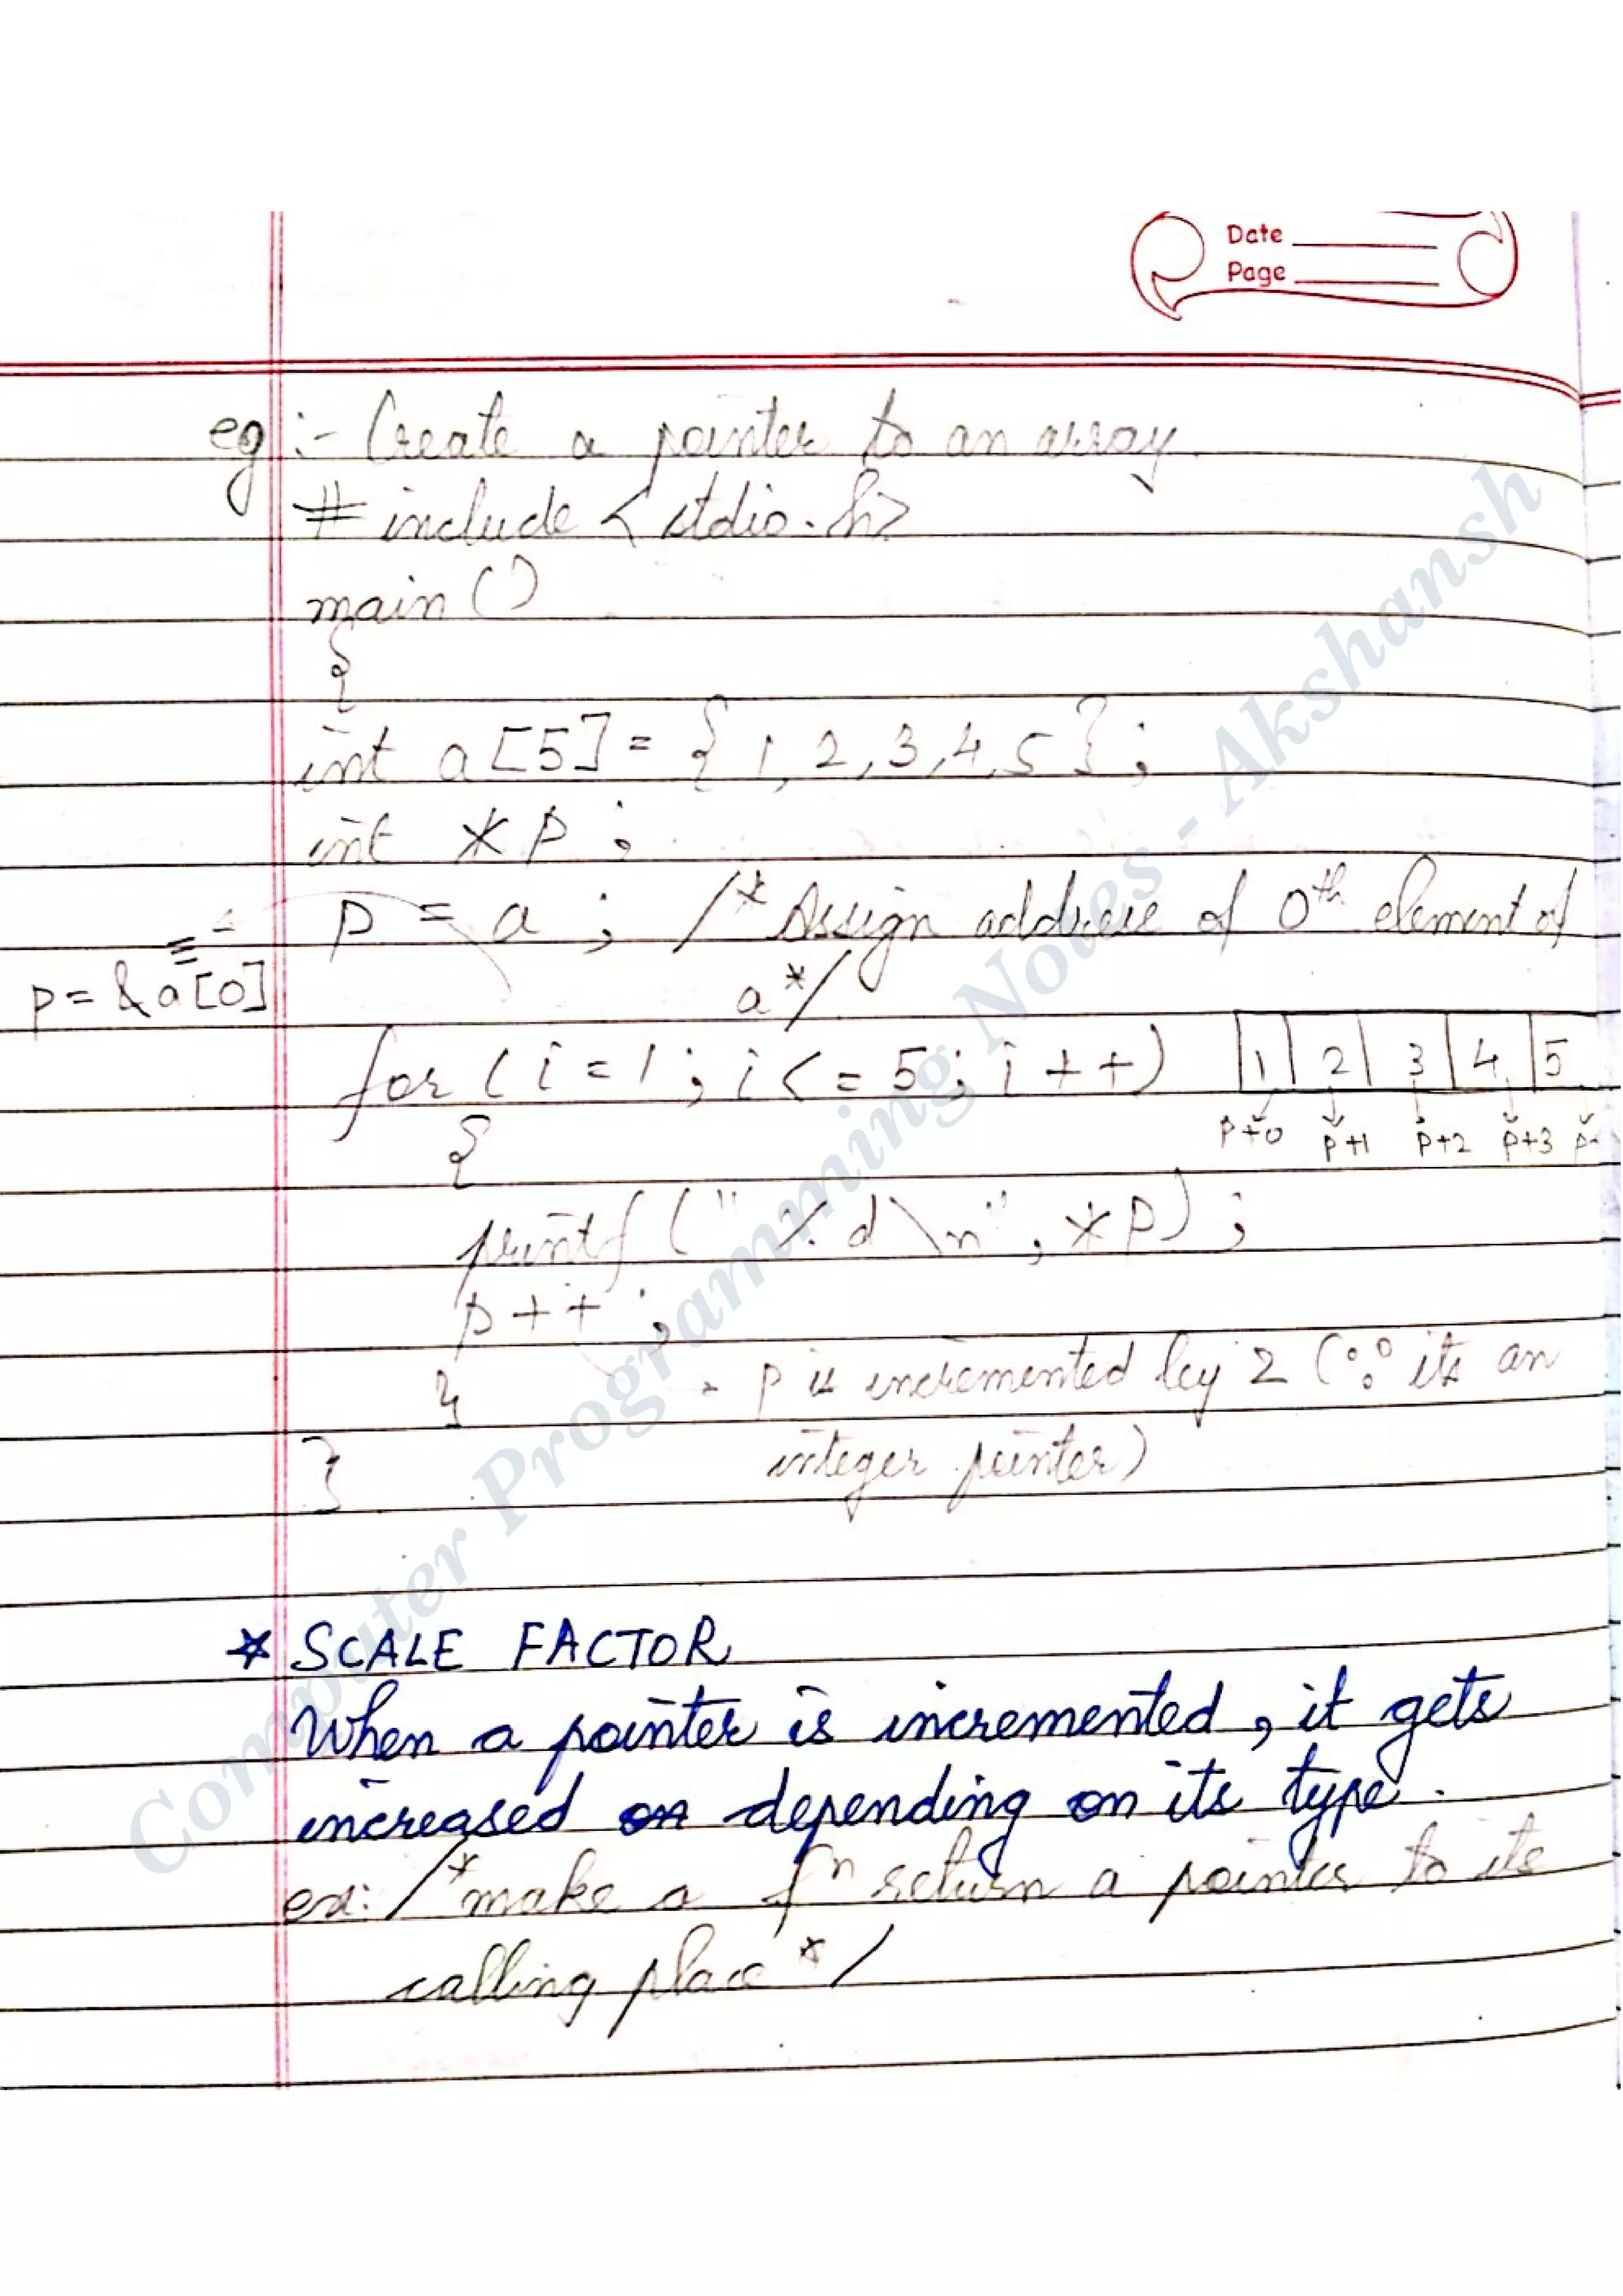 Date
Page
eg :- Create a pointer to an array.
# include < stdio.h>
main ()
{
int a [5] = { 1, 2, 3, 4, 5 } ;
int * p ;
p = a ; /* Assign address of 0th element of
a */
≡
p = & a [0]
for ( i = 1 ; i < = 5 ; i + + )
1 2 3 4 5
p+0 p+1 p+2 p+3
{
printf (" %d \n" , * p) ;
p + + ;
} - p is incremented by 2 (∵ its an
integer pointer)
}
* SCALE FACTOR
When a pointer is incremented, it gets
increased depending on its type.
ex: /* make a fn return a pointer to its
calling place */
Computer Programming Notes - Akshansh